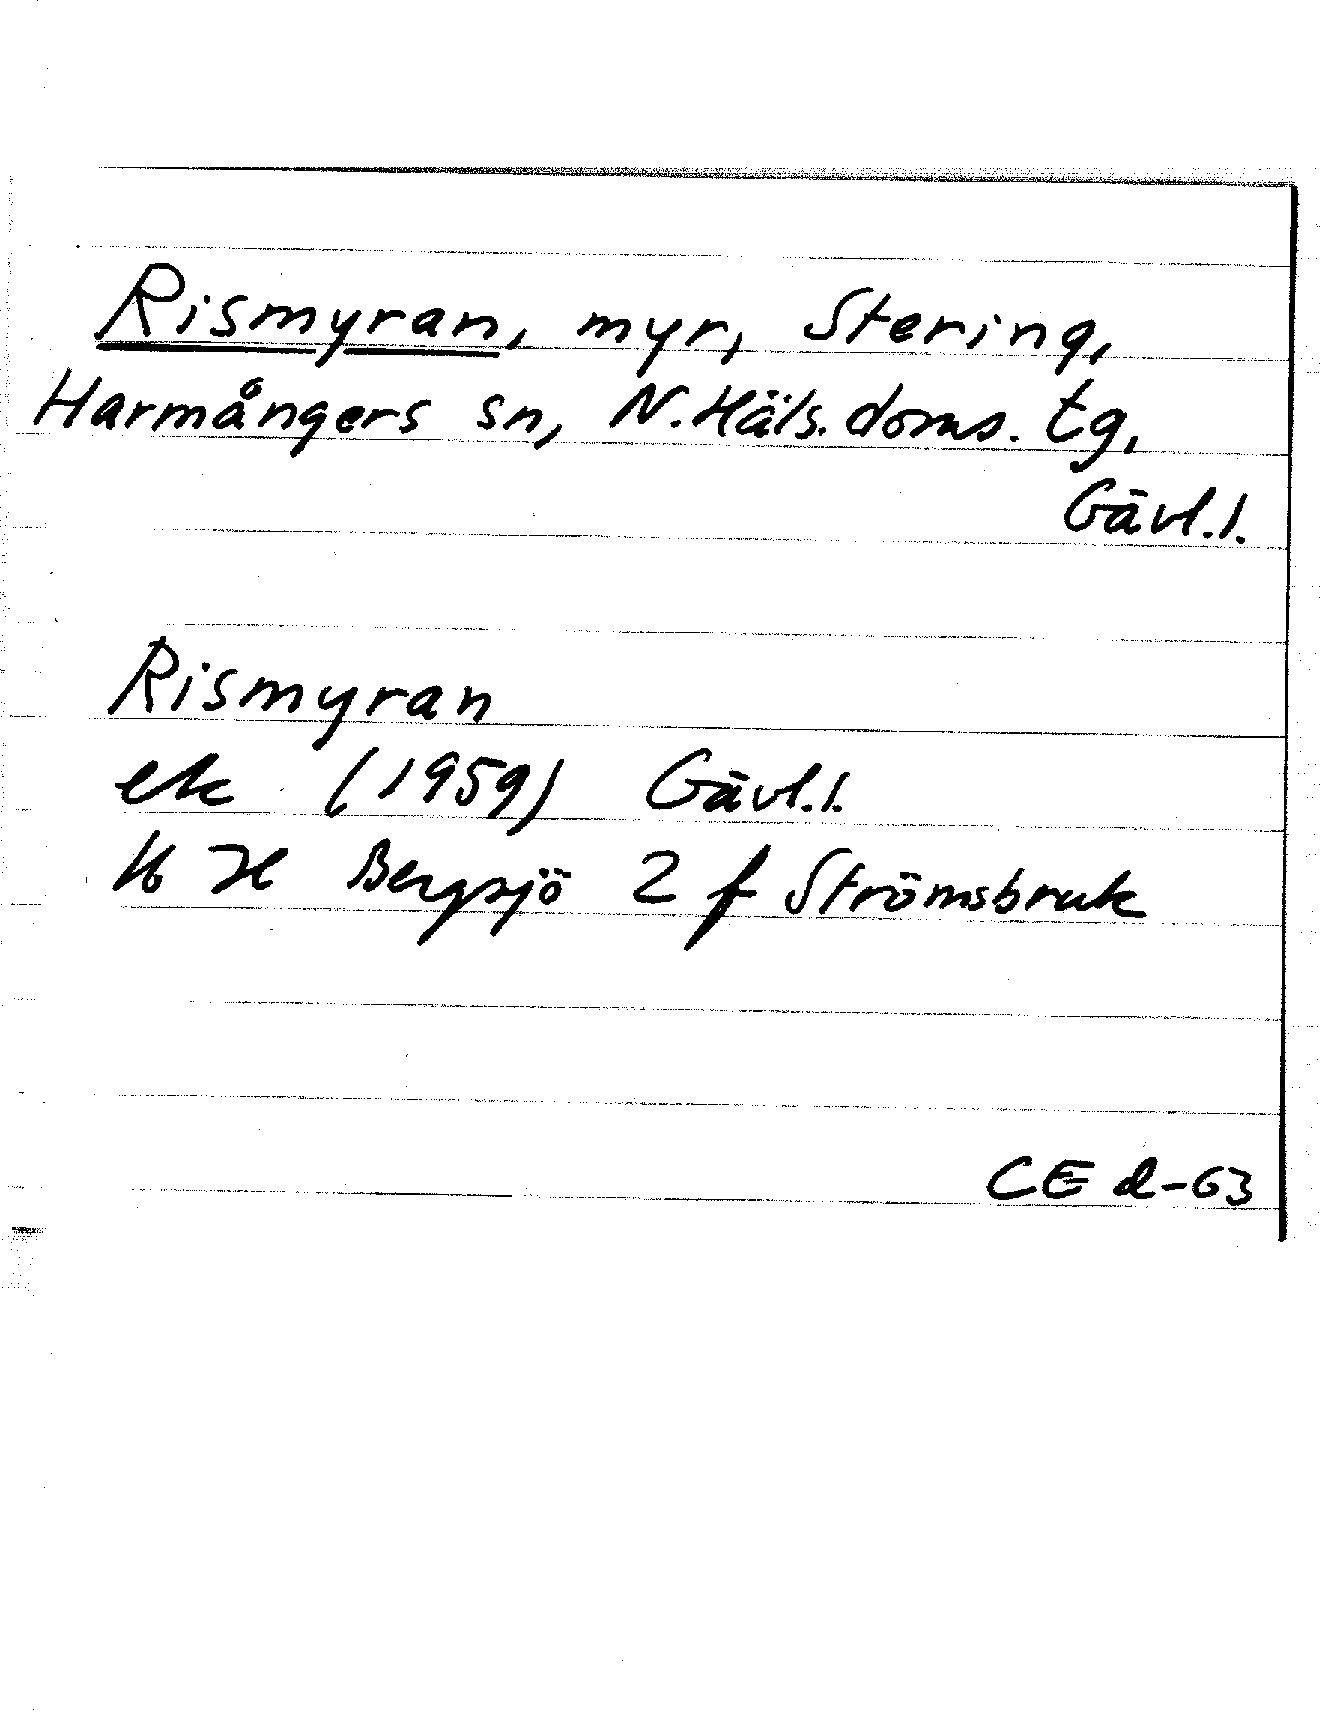 Rismyran, myr, Stering,
Harmångers sn, N. Häls. doms. tg,
Gävl. l.
Rismyran
ek (1959) Gävl. l.
16 H Bergsjö 2 f Strömsbruk
CE d-63